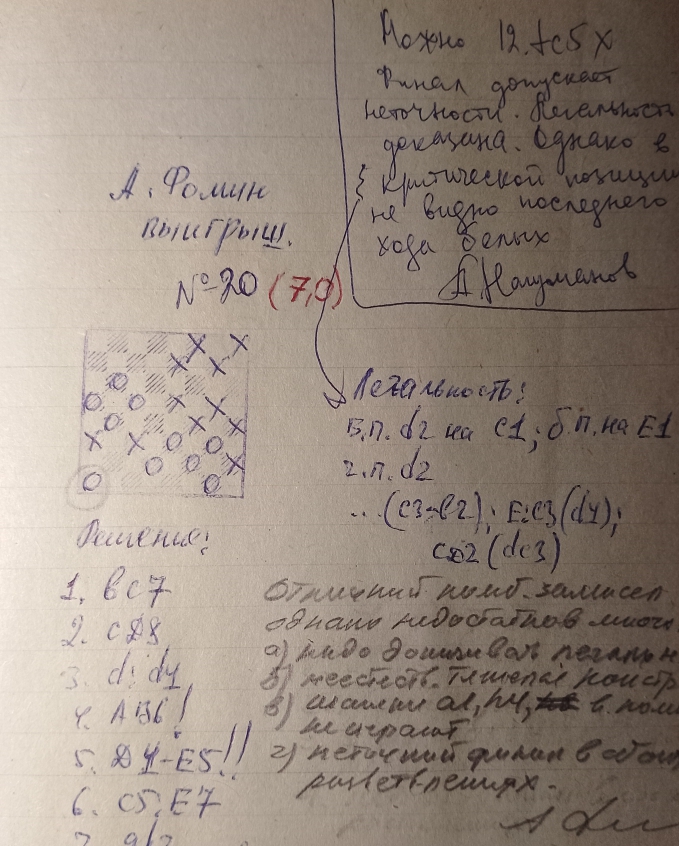 Можно 12. fc5 X
Финал допускает
неточности. Легальность
доказана. Однако в
критической позиции
не видно последнего
хода белых
А. Фомин
выигрыш.
№ 20 (7,0)
Легальность:
Б.п. d2 на c1; б.п. на E1
ч.п. d2
...(c3-b2); E:c3(d4);
Решение:
1. bc7
2. cD8
3. d:d4
4. AB6!
5. D4-E5!!
6. C5:E7
Отличный комб. замысел
однако недостатков много
а) надо доказывать легальн
б) неестеств. тяжелая констр
в) шашки a1, h4, в
не играют
г) неточный финал в
разветвлениях.